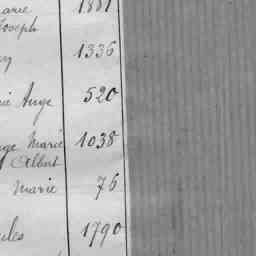 arie 1881
Joseph
1336
rie Ange 520
ge Marie 1038
Albert
Marie 76
ules 1790